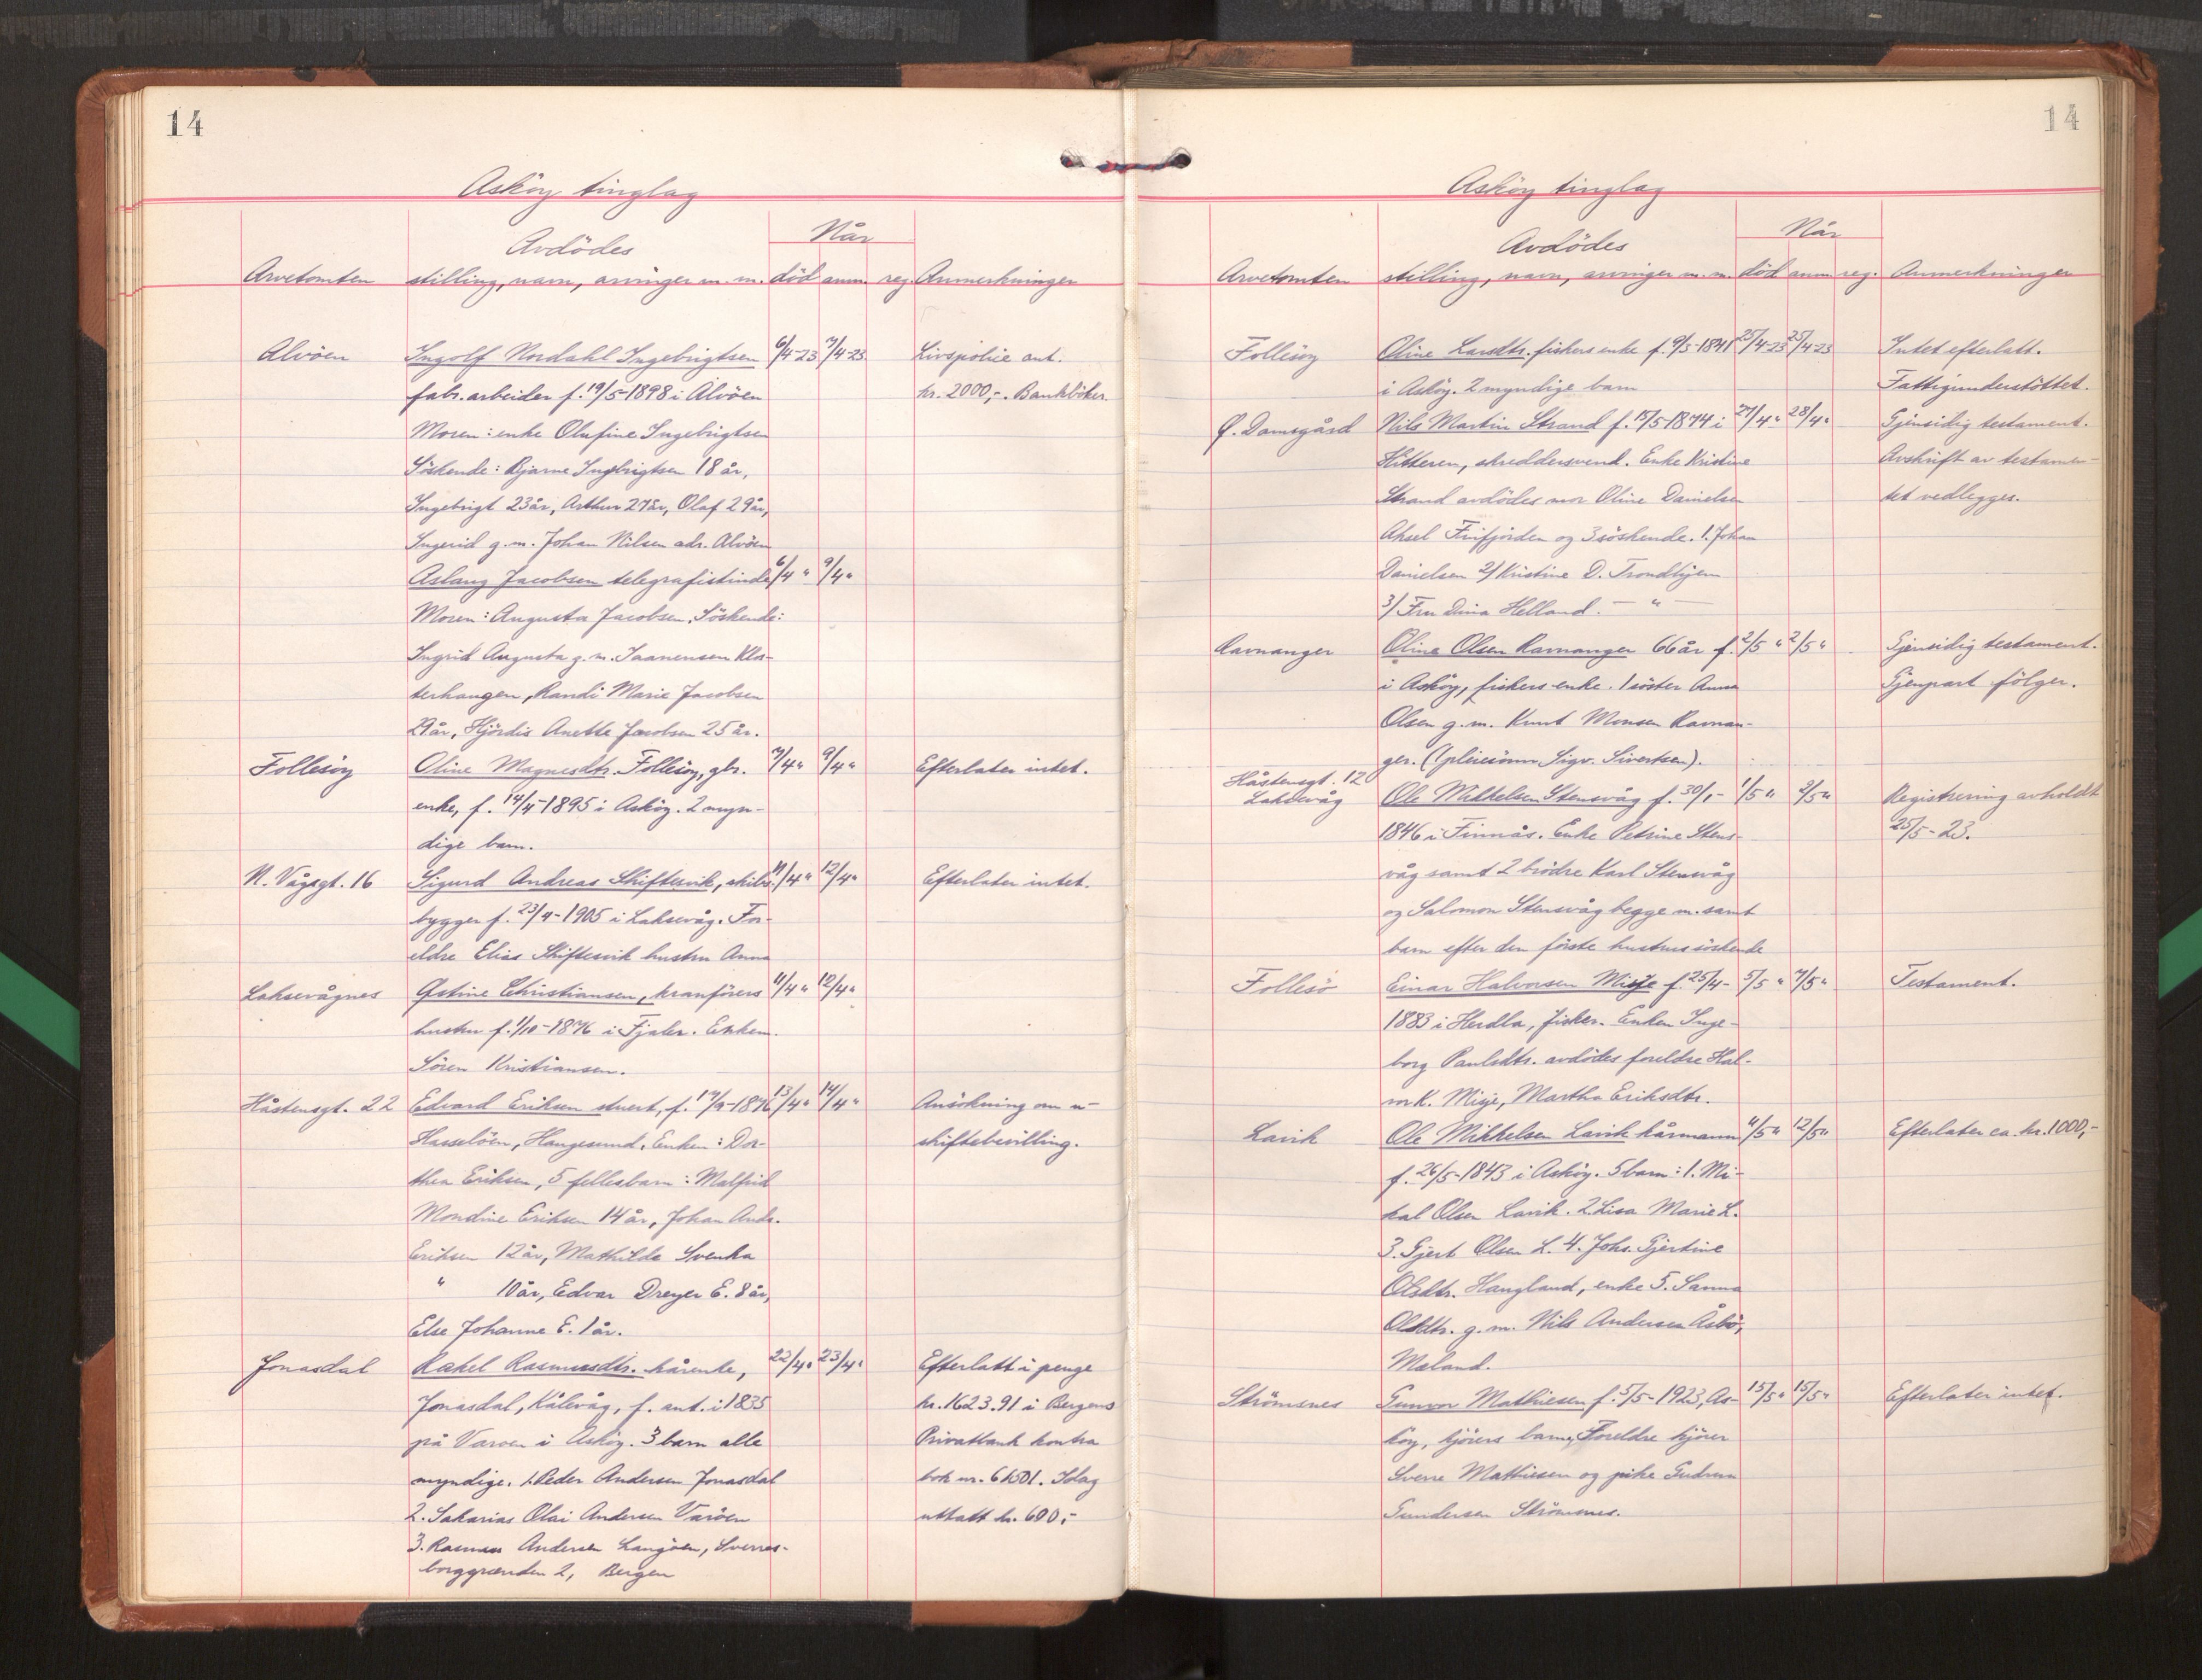 14
Askøy tinglag
Avdödes
Når
Arvetomten stilling, navn, arvinger m.m. död anm. reg. Anmerkninger
Alvöen Ingolf Nordahl Ingebrigtsen 6/4-23 7/4-23 Livspolice ant.
fabr.arbeider f. 19/5-1898 i Alvöen kr. 2000,-. Bankböker
Moren: enke Olufine Ingebrigtsen
Söskende: Bjarne Ingebrigtsen 18 år,
Ingebrigt 23 år, Arthur 27 år, Olaf 29 år,
Ingerid g.m. Johan Nilsen adr. Alvöen
Aslaug Jacobsen telegrafistinde 6/4 " 9/4 "
Moren: Augusta Jacobsen. Söskende:
Ingrid Augusta g.m. Isanensen Klos-
terhaugen, Randi Marie Jacobsen
29 år, Hjördis Anette Jacobsen 25 år.
Follesöy Oline Magnesdtr. Follesöy, gbr. 7/4 " 9/4 " Efterlater intet.
enke, f. 14/4-1895 i Asköy. 2 myn-
dige barn.
N. Vågsgt. 16 Sigurd Andreas Skiftesvik, skibs- 11/4 " 12/4 " Efterlater intet.
bygger f. 23/4-1905 i Laksevåg. For-
eldre Elias Skiftesvik hustru Anna
Laksevågnes Østine Christiansen, kranförers 11/4 " 12/4 "
hustru f. 1/10-1876 i Fjaler. Enkem.
Sören Kristiansen.
Håstensgt. 22 Edvard Eriksen stuert, f. 17/9-1876 13/4 " 14/4 " Ansökning om u-
Hasselöen, Haugesund. Enken: Dor- skiftebevilling.
thea Eriksen, 5 fellesbarn: Malfrid
Mondine Eriksen 14 år, Johan Ands.
Eriksen 12 år, Mathilde Svenka
" 10 år, Edvar Dreyer E. 8 år,
Else Johanne E. 1 år.
Jonasdal Rakel Rasmusdtr. kårenke, 22/4 " 23/4 " Efterlatt i penge
Jonasdal, Kålevåg, f. ant. i 1835 kr. 1623.91 i Bergens
på Varøen i Asköy. 3 barn alle Privatbank kontra
myndige. 1. Peder Andersen Jonasdal bok nr. 61501. Idag
2. Sakarias Olai Andersen Varöen uttatt kr. 600,-
3. Rasmus Andersen Langöen, Sverres-
borggrænden 2, Bergen
14
Asköy tinglag
Avdödes
Når
Arvetomten stilling, navn, arvinger m.m. död anm. reg. Anmerkninger
Follesöy Oline Larsdtr. fiskers enke f. 9/5-1841 25/4-23 25/4-23 Intet efterlatt.
i Asköy. 2 myndige barn Fattigunderstöttet.
Ø. Damsgård Nils Martin Strand f. 15/5 1874 i 27/4 " 28/4 " Gjensidig testament.
Hitteren, skreddersvend. Enke Kristine Avskrift av testamen-
Strand avdödes mor Oline Danielsen tet vedlegges.
Aksel Finfjorden og 3 söskende. 1. Johan
Danielsen 2/ Kristine D. Trondhjem
3/ Fru Dina Helland. — " —
Ravnanger Oline Olsen Ravnanger 66 år f. 2/5 " 2/5 " Gjensidig testament.
i Asköy, fiskers enke. 1 söster Anna Gjenpart fölger.
Olsen g.m. Knut Monsen Ravnan-
ger. (1 pleiesönn Sigv. Sivertsen).
Håstensgt. 12
Laksevåg Ole Mikkelsen Stensvåg f. 30/1- 1/5 " 2/5 " Registrering avholdt
1846 i Finnås. Enke Petrine Stens- 25/5-23.
våg samt 2 brödre Karl Stensvåg
og Salomon Stensvåg begge m. samt
barn efter den förste hustrus söskende
Follesö Einar Halvorsen Misje f. 25/4- 5/5 " 7/5 " Testament.
1883 i Herdla, fisker. Enken Inge-
borg Paulsdtr. avdödes foreldre Hal-
vor K. Misje, Martha Eriksdtr.
Lavik Ole Mikkelsen Lavik kårmann 11/5 " 12/5 " Efterlater ca. kr. 1000,-
f. 26/5-1843 i Asköy. 5 barn: 1. Mi-
kal Olsen Lavik. 2. Lisa Marie L.
3. Gjert Olsen L. 4. Johs. Gjertine
Olsdtr. Haugland, enke 5. Sanna
Olsdtr. g.m. Nils Andersen Åsbö,
Mæland.
Strömsnes Gunvor Mathiesen f. 5/5-1923, As- 15/5 " 15/5 " Efterlater intet.
köy, kjörers barn. Foreldre kjörer
Sverre Mathiesen og pike Gudrun
Gundersen Strömsnes.